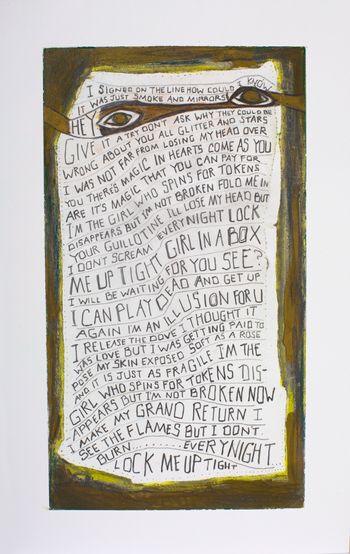 I SIGNED ON THE LINE HOW COULD I KNOW
IT WAS JUST SMOKE AND MIRRORS
HEY
GIVE IT A TRY DONT ASK WHY THEY COULD BE
WRONG ABOUT YOU ALL GLITTER AND STARS
I WAS NOT FAR FROM LOSING MY HEAD OVER
YOU THERES MAGIC IN HEARTS COME AS YOU
ARE IT'S MAGIC THAT YOU CAN PAY FOR
I'M THE GIRL WHO SPINS FOR TOKENS
DISAPPEARS BUT I'M NOT BROKEN FOLD ME IN
YOUR GUILLOTINE ILL LOSE MY HEAD BUT
I DONT SCREAM EVERYNIGHT LOCK
ME UP TIGHT GIRL IN A BOX
I WILL BE WAITING FOR YOU SEE?
I CAN PLAY DEAD AND GET UP
AGAIN IM AN ILLUSION FOR U
I RELEASE THE DOVE I THOUGHT IT
WAS LOVE BUT I WAS GETTING PAID TO
POSE MY SKIN EXPOSED SOFT AS A ROSE
AND IT IS JUST AS FRAGILE IM THE
GIRL WHO SPINS FOR TOKENS DIS-
APPEARS BUT I'M NOT BROKEN NOW
I MAKE MY GRAND RETURN I
SEE THE FLAMES BUT I DONT
BURN......EVERYNIGHT...
LOCK ME UP TIGHT....